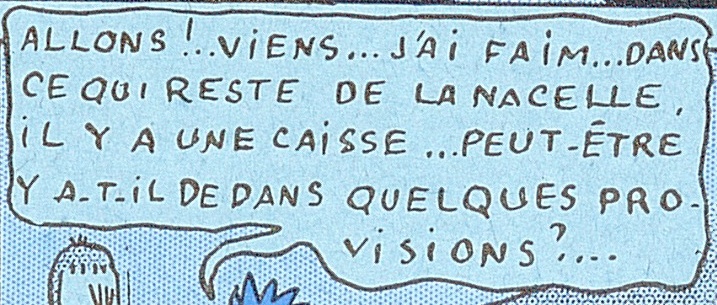 ALLONS !..VIENS... J'AI FAIM...DANS
CE QUI RESTE DE LA NACELLE,
IL Y A UNE CAISSE ...PEUT-ÊTRE
Y A-T-IL DEDANS QUELQUES PRO-
VISIONS ?....